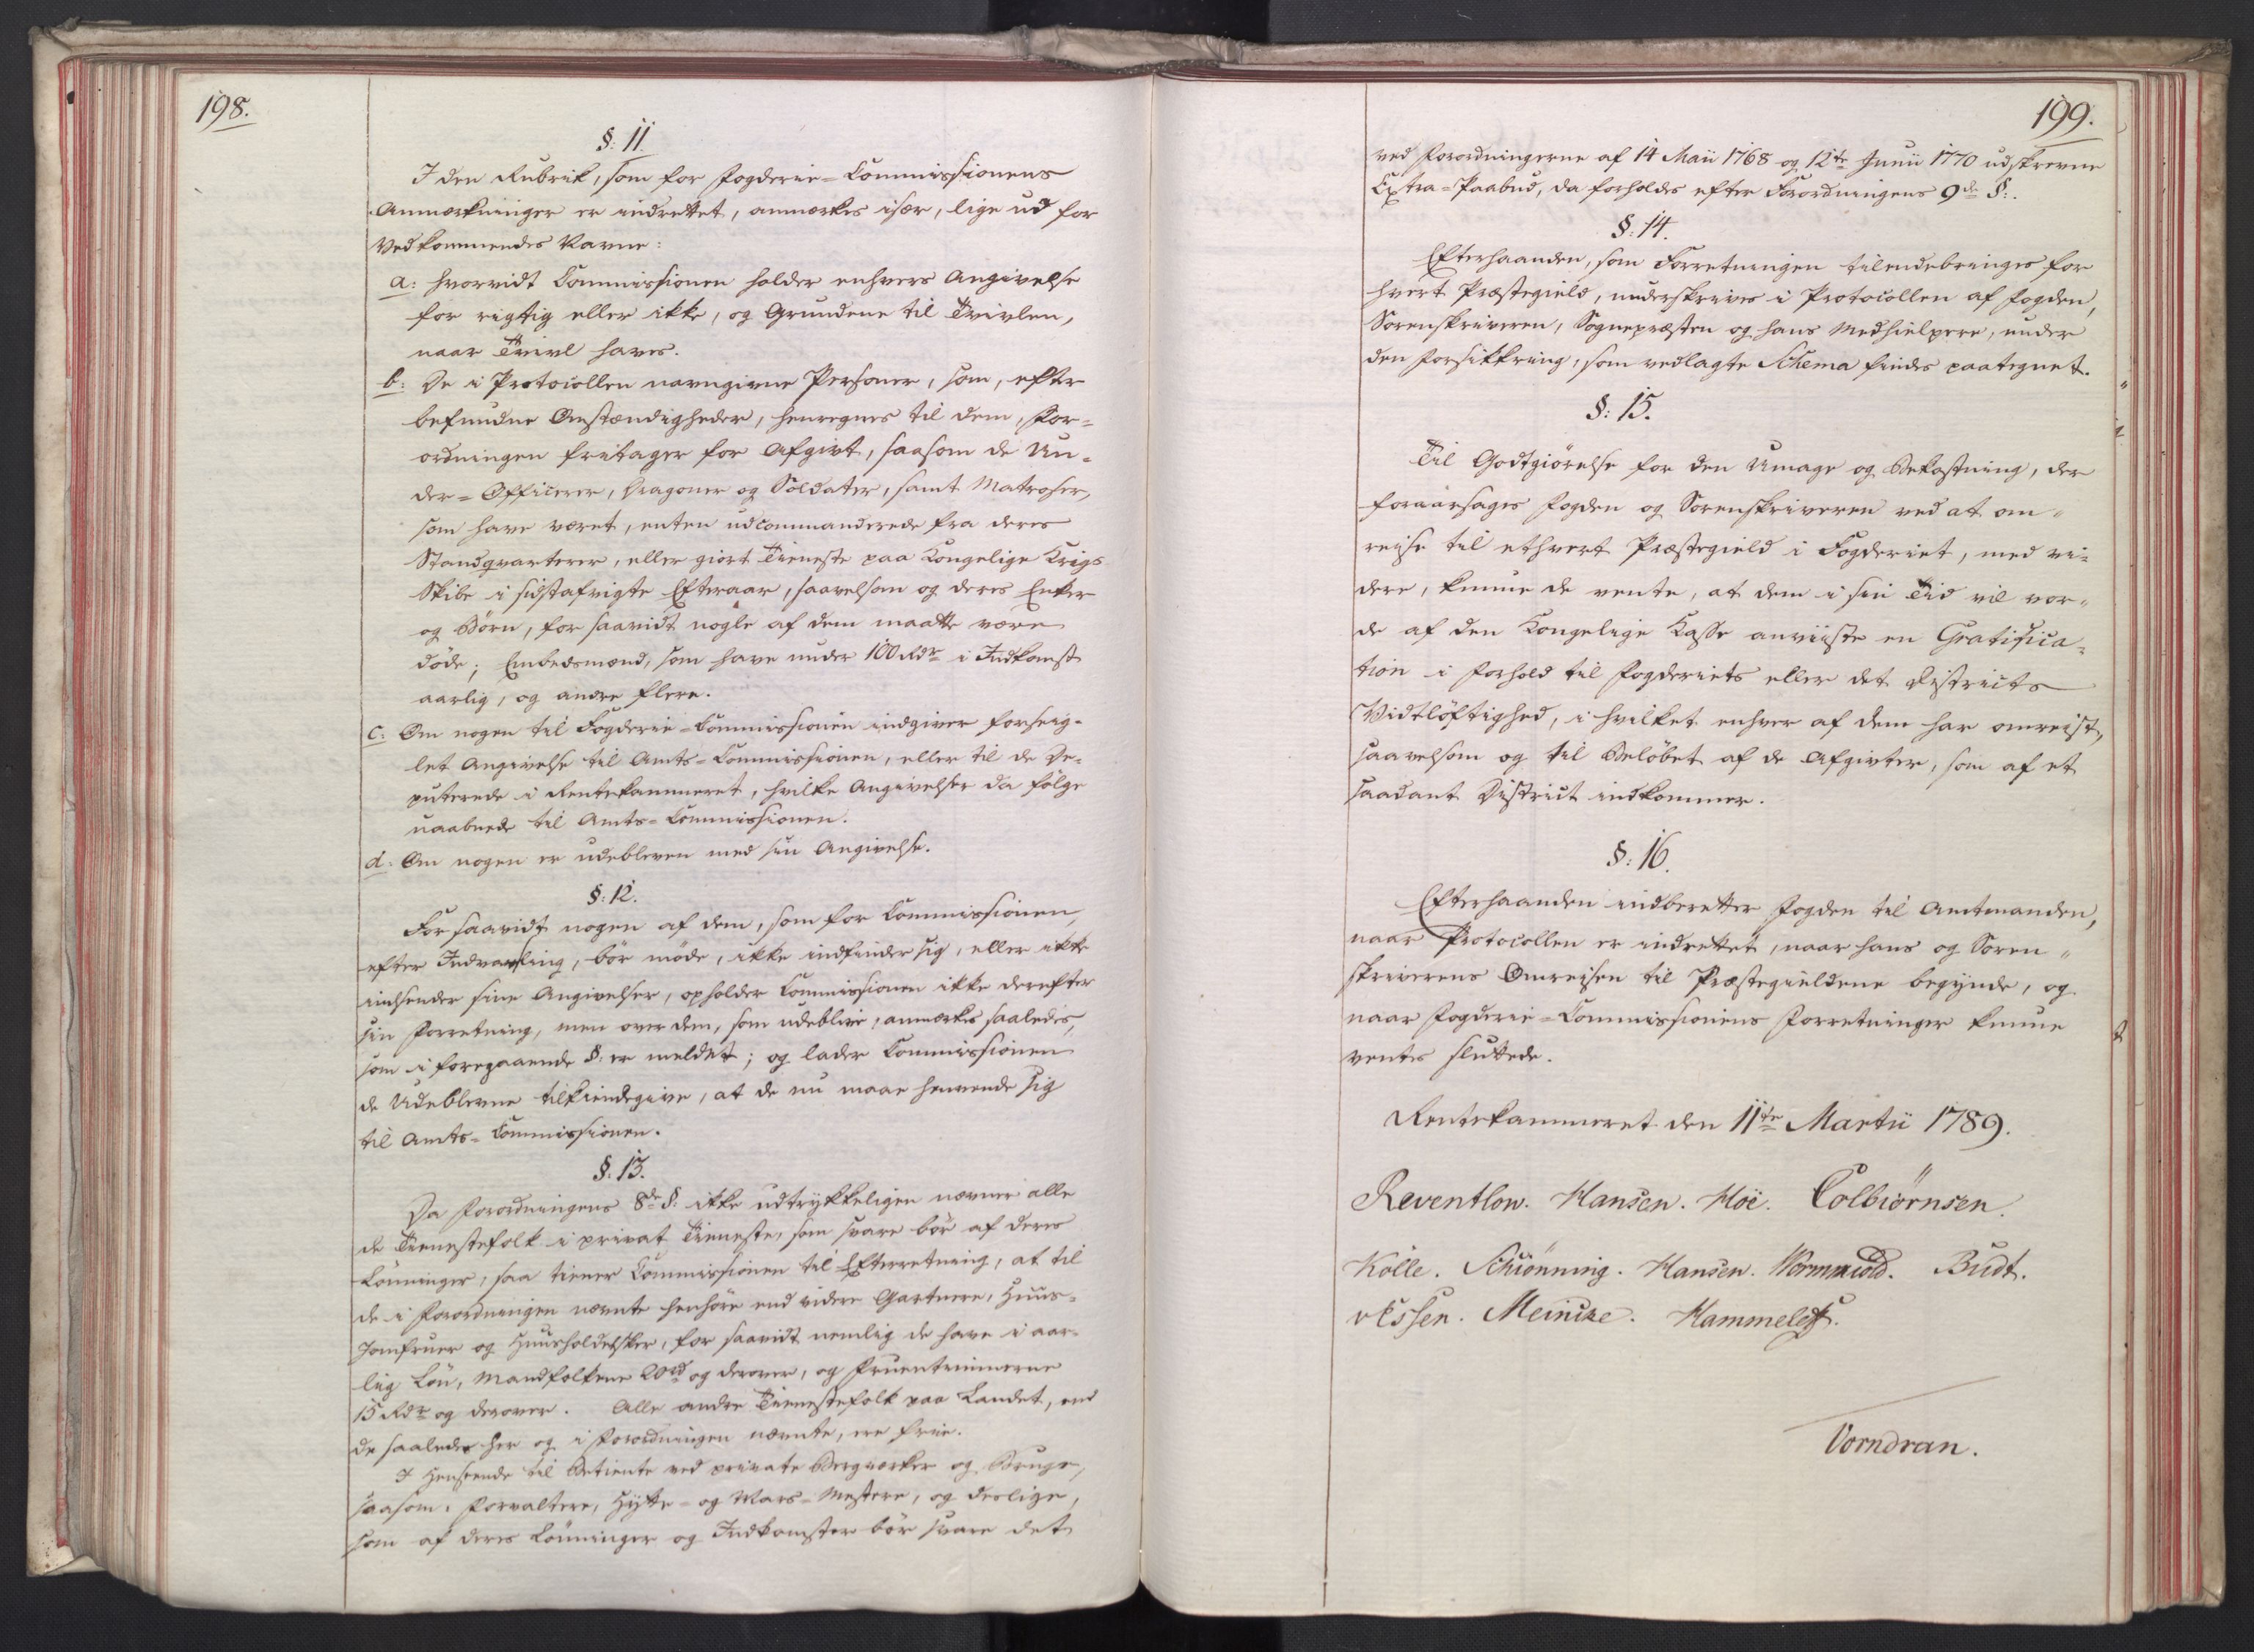 198.
§: 11.
I den Rubrik, som for Fogderie=Commissionens
Anmærkninger er indrettet, anmærkes især, lige ud for
Vedkommendes Navne:
a: hvorvidt Commissionen holder enhvers Angivelse
for rigtig eller ikke, og Grundene til Tvivlen,
naar Tvivl haves.
b: De i Protocollen navngivne Personer, som, efter
befundne Omstændigheder, henregnes til dem, For=
ordningen fritager for Afgivt, saasom de Un=
der=Officerer, Dragoner og Soldater, samt Matroser,
som have været, enten udcommanderede fra deres
Standqvarterer, eller giort Tieneste paa Kongelige Krigs
Skibe i sidstafvigte Efteraar, saavelsom og deres Enker
og Børn, for saavidt nogle af dem maatte være
døde; Embedsmænd, som have under 100 Rdr i Indkomst
aarlig, og andre flere.
c: Om nogen til Fogderie=Commissionen indgiver forseig=
let Angivelse til Amts=Commissionen, eller til de De=
puterede i Rentekammeret, hvilke Angivelser da følge
uaabnede til Amts=Commissionen.
d: Om nogen er udebleven med sin Angivelse.
§: 12.
For saavidt nogen af dem, som for Commissionen,
efter Indvarsling, bør møde, ikke indfinder sig, eller ikke
indsender sine Angivelser, opholder Commissionen ikke derefter
sin Forretning, men over dem, som udeblive, anmærkes saaledes,
som i foregaaende §: er meldet; og lader Commissionen
de Udeblevne tilkiendegive, at de nu maae henvende sig
til Amts=Commissionen.
§: 13.
Da Forordningens 8de §: ikke udtrykkeligen nævner alle
de Tienestefolk i privat Tieneste, som svare bør af deres
Lønninger, saa tiener Commissionen til Efterretning, at til
de i Forordningen nævnte henhøre end videre Gartnere, Huus=
Jomfruer og Huusholdersker, for saavidt nemlig de have i aar=
lig Løn, Mandfolkene 20 rd og derover, og Fruentimmerne
15 Rdr og derover. Alle andre Tienestefolk paa Landet, end
de saaledes her og i Forordningen nævnte, ere frie.
I Henseende til Betiente ved private Bergværker og Bruge,
saasom: Forvaltere, Hytte= og Mars=Mestere, og deslige,
som af deres Lønninger og Indkomster bør svare det
199.
ved Forordningerne af 14 Maii 1768 og 12te Junii 1770 udskrevne
Extra=Paabud, da forholdes efter Forordningens 9de §:.
§: 14.
Efterhaanden, som Forretningen tilendebringes for
hvert Præstegield, underskrives i Protocollen af Fogden,
Sorenskriveren, Sognepræsten og hans Medhielpere, under
den Forsikkring, som vedlagte Schema findes paategnet.
§: 15.
Til Godtgiørelse for den Umage og Bekostning, der
foraarsages Fogden og Sorenskriveren ved at om=
reise til ethvert Præstegield i Fogderiet, med vi=
dere, kunne de vente, at dem i sin Tid vil vor=
de af den Kongelige Kasse anviiste en Gratifica=
tion i Forhold til Fogderiets eller det Districts
Vidtløftighed, i hvilket enhver af dem har omreist,
saavelsom og til Beløbet af de Afgivter, som af et
saadant District indkommer.
§: 16.
Efterhaanden indberetter Fogden til Amtmanden,
naar Protocollen er indrettet, naar hans og Soren=
skriverens Omreisen til Præstegieldene begynde, og
naar Fogderie=Commissionens Forretninger kunne
ventes sluttede.
Rentekammeret den 11te Martii 1789.
Reventlow. Hansen. Høe. Colbiørnsen.
Kölle. Schiönning. Hansen. Wormskiold. Budt.
v Essen. Meincke. Hammeleff.
Vorndran.